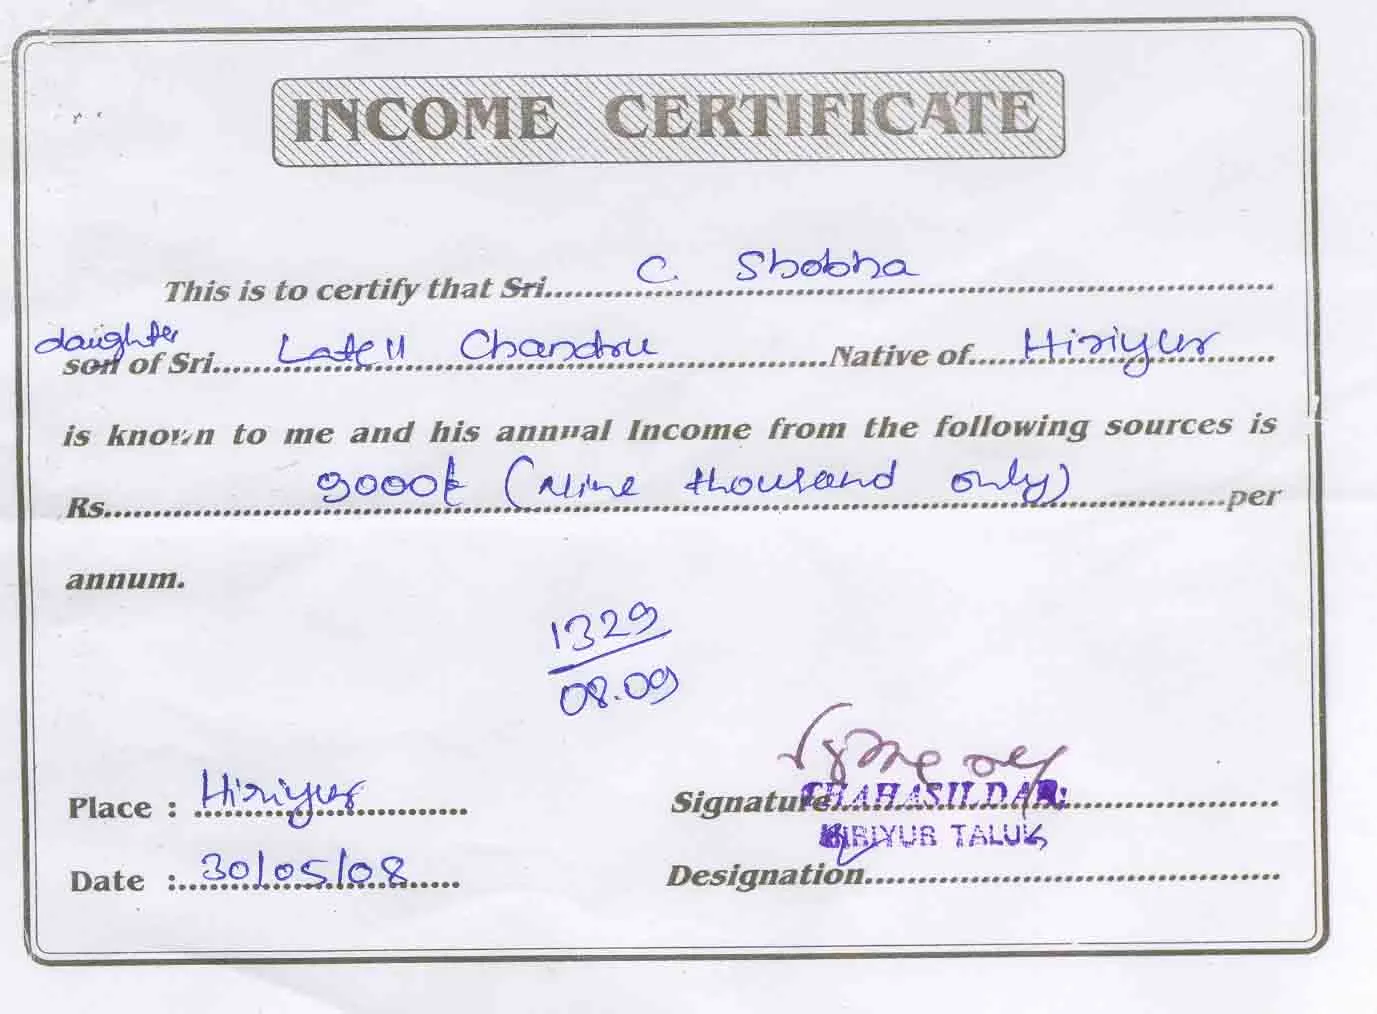 INCOME CERTIFICATE
This is to certify that Sri..... C. Shobha
daughter
son of Sri..... Late || Chandru .....Native of..... Hiriyur
is known to me and his annual Income from the following sources is
Rs..... 9000/- (Nine thousand only) .....per
annum.
1329
08.09
Place : Hiriyur
Signature
THAHASILDAR
HIRIYUR TALUK
Date : 30/05/08
Designation.....